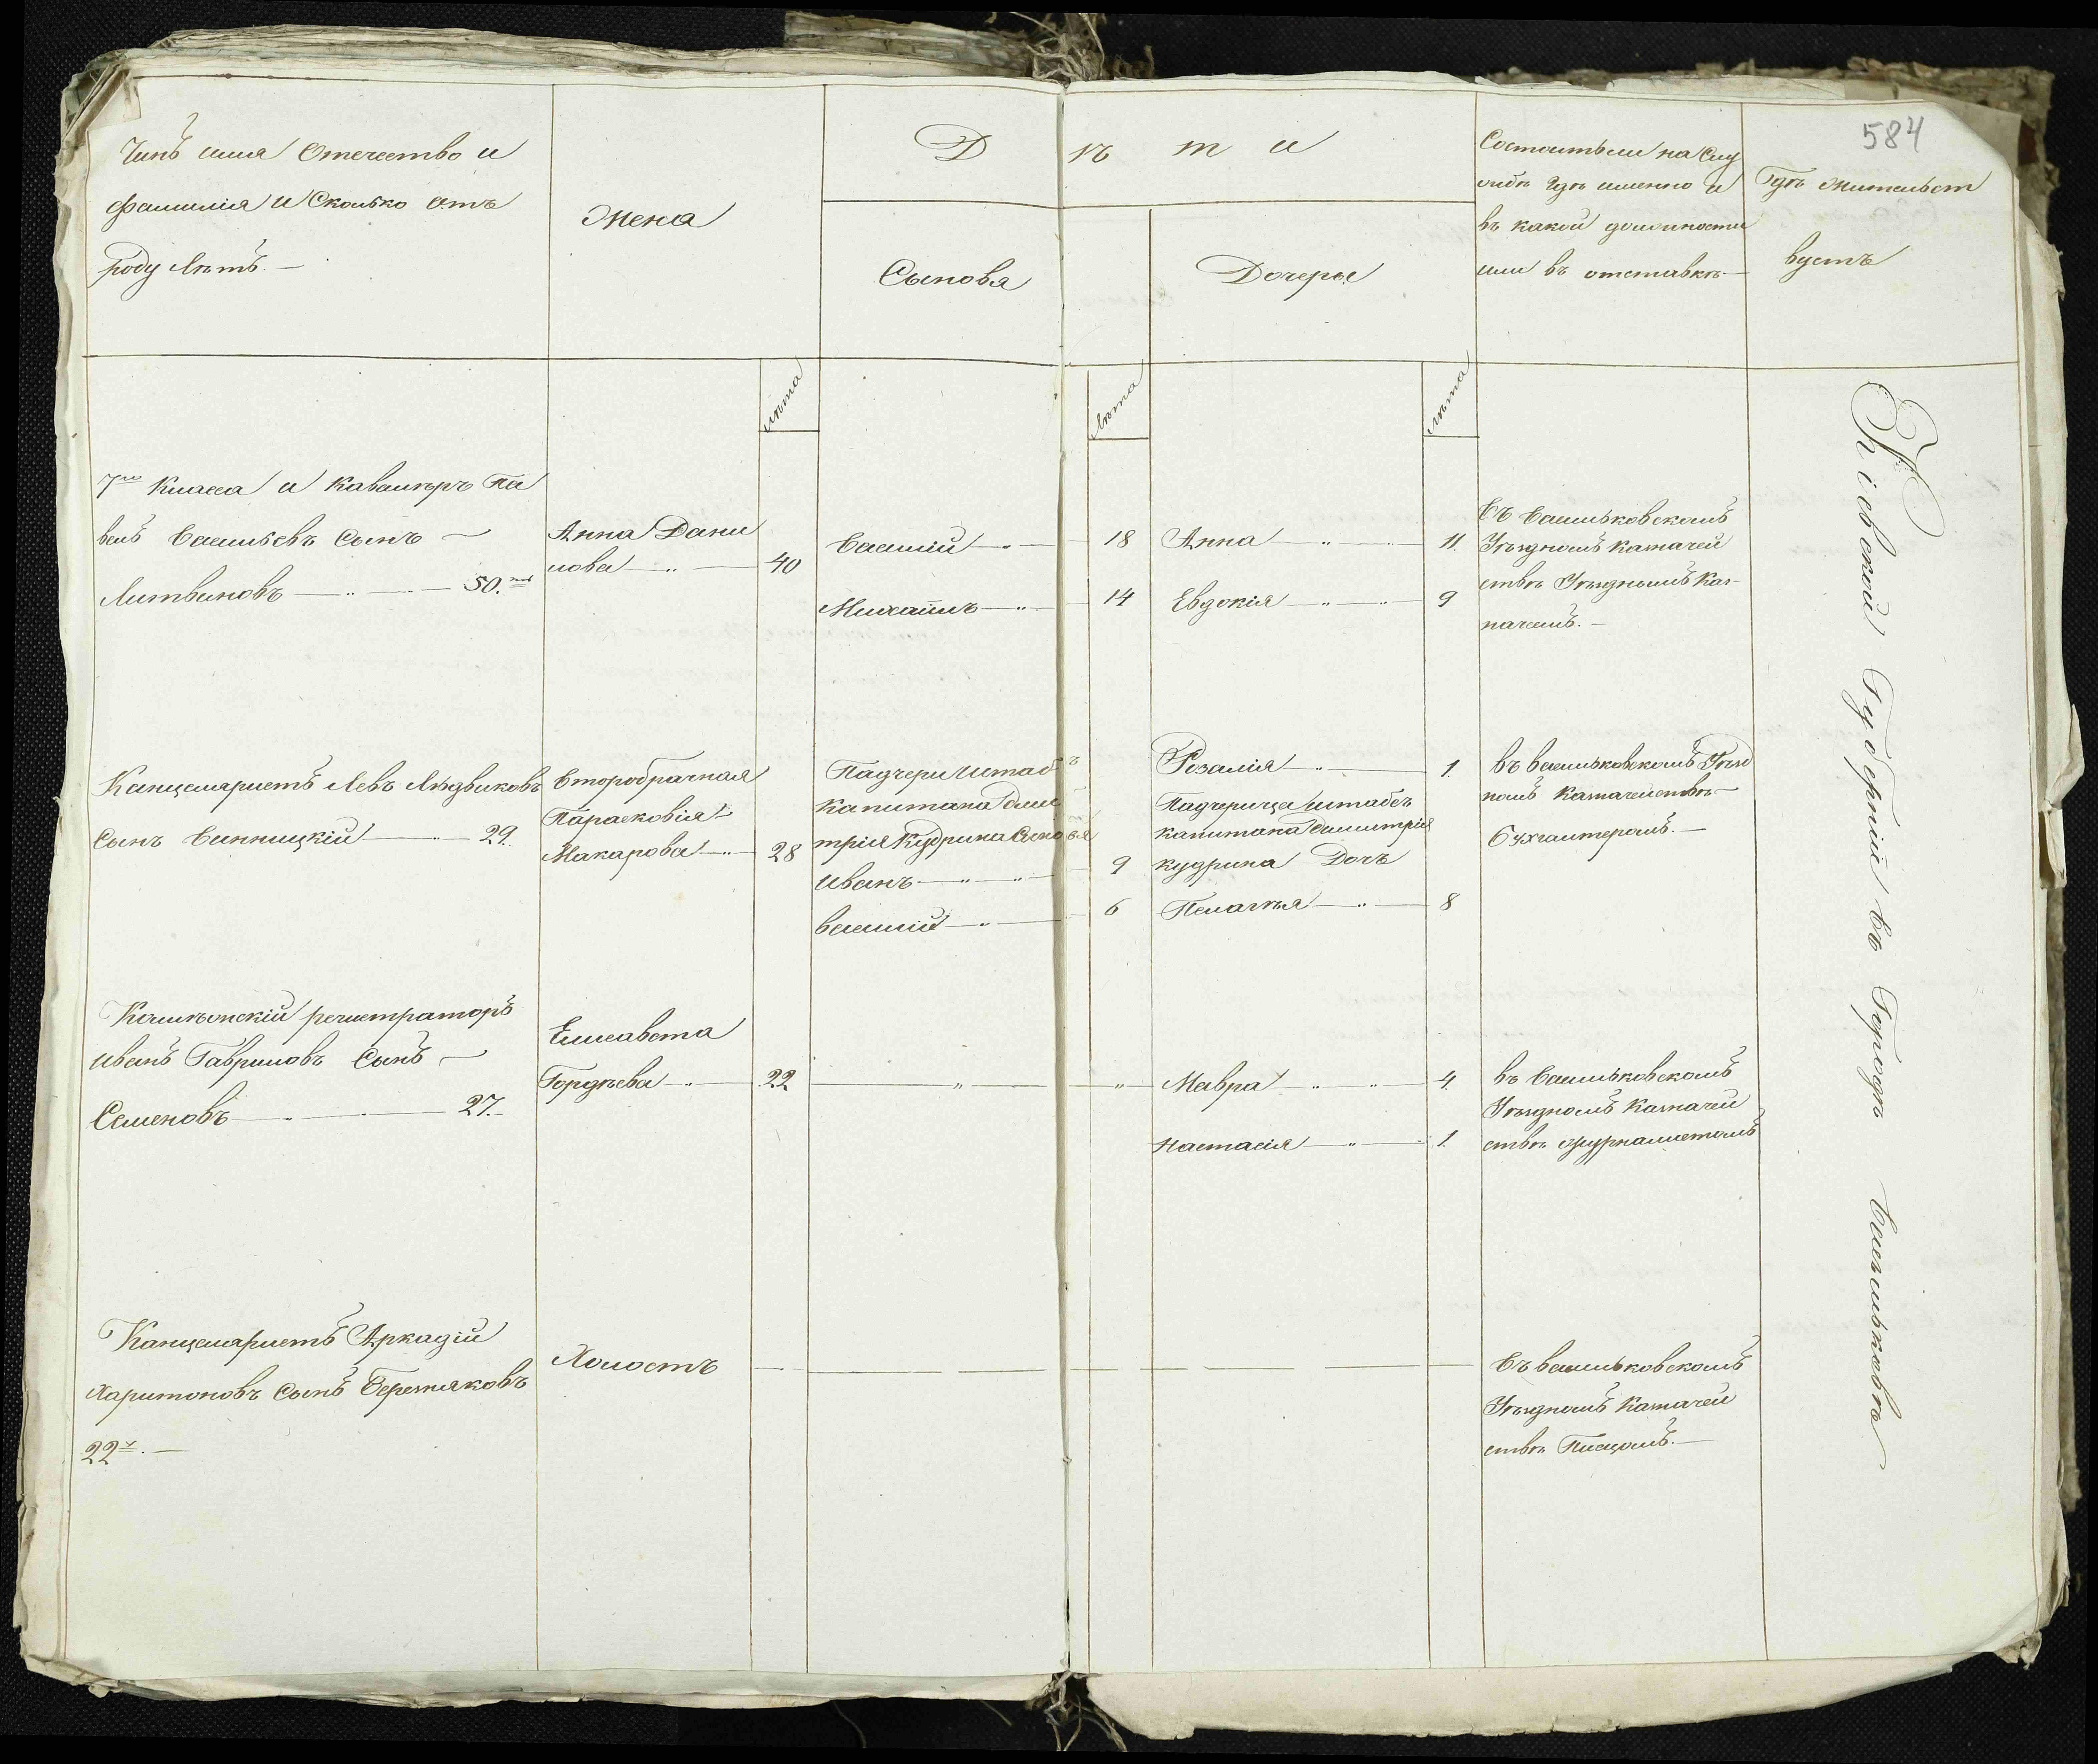 584
Чинъ имя Отечество и
фамилія и Сколько отъ
роду лѣтъ. —
Жена
Дѣти
Сыновя
Дочеры
Состоитъ ли на Слу
жбѣ Гдѣ именно и
въ какой должности
или въ отставкѣ —
Гдѣ жительст
вуетъ
лѣта
лѣта
лѣта
7го Класса и Кавалеръ Па
велъ Васильевъ Сынъ —
Литвиновъ — 50.
Анна Дани
лова — 40
Василій — 18
Михаилъ — 14
Анна — 11.
Евдокія — 9
Въ Васильковскомъ
Уѣздномъ Казначей
ствѣ Уѣзднымъ Каз-
начеемъ. —
Канцеляристъ Левъ Людвиковъ
Сынъ Винницкій — 29.
Второбрачная
Парасковія
Макарова — 28
Падчери Штабъ
Капитана Дми
трія Кудрина Сыновя
Иванъ — 9
василій — 6
Розалія — 1.
Падчерица Штабсъ
капитана Димитрія
кудрина Дочь
Пелагѣя — 8
въ васильковскомъ Уѣзд
номъ Казначействѣ
Бухгалтеромъ. —
Колѣжскій регистраторъ
иванъ Гавриловъ Сынъ —
Семеновъ — 27. —
Елисавета
Гордѣева — 22
„ — „
Мавра — 4
Настасія — 1.
въ Васильковскомъ
Уѣздномъ Казначей
ствѣ журналистомъ
Канцеляристъ Аркадій
Харитоновъ Сынъ Березняковъ
22. —
Холостъ —
Въ васильковскомъ
Уѣздномъ Казначей
ствѣ Писцомъ. —
Кіевской Губерніи въ Городѣ Василковѣ